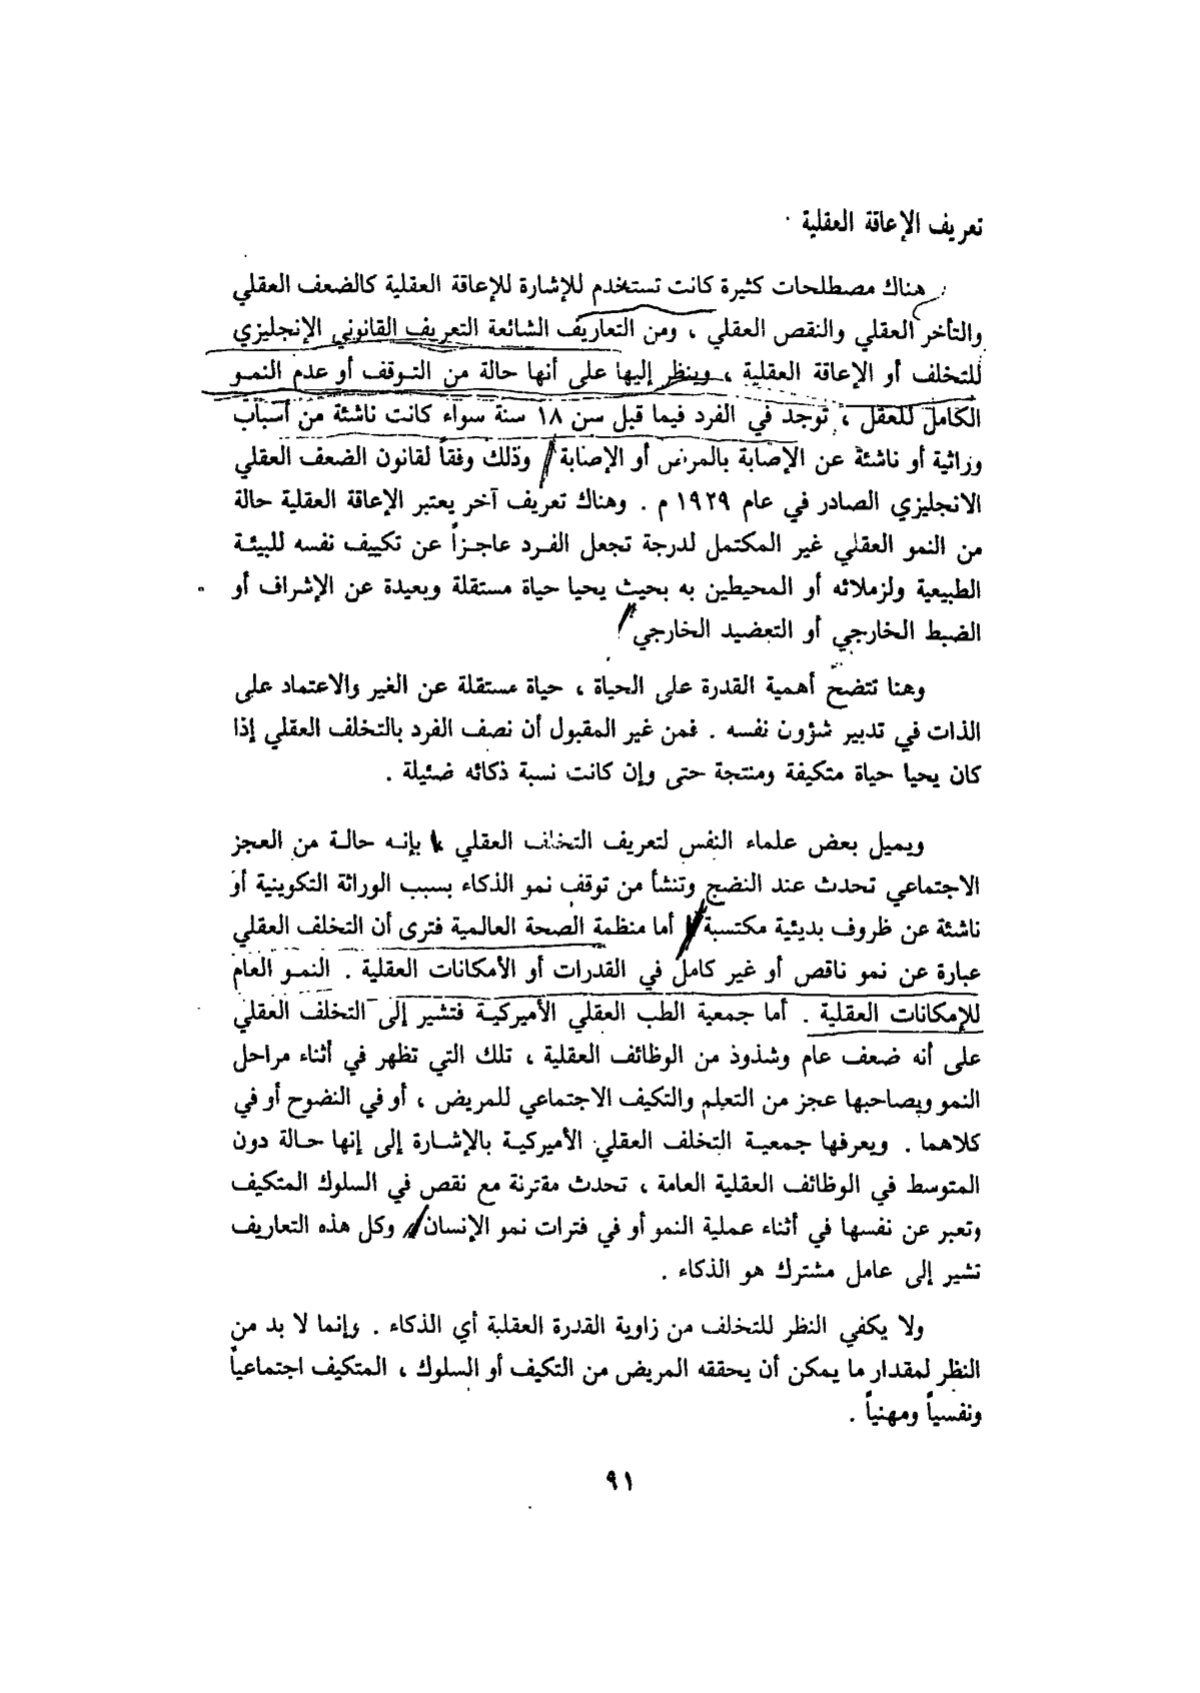 تعريف الإعاقة العقلية
هناك مصطلحات كثيرة كانت تستخدم للإشارة للإعاقة العقلية كالضعف العقلي
والتأخر العقلي والنقص العقلي ، ومن التعاريف الشائعة التعريف القانوني الإنجليزي
للتخلف أو الإعاقة العقلية ، وينظر إليها على أنها حالة من التوقف أو عدم النمو
الكامل للعقل ، توجد في الفرد فيما قبل سن ١٨ سنة سواء كانت ناشئة من أسباب
وراثية أو ناشئة عن الإصابة بالمرض أو الإصابة وذلك وفقاً لقانون الضعف العقلي
الانجليزي الصادر في عام ١٩٢٩ م . وهناك تعريف آخر يعتبر الإعاقة العقلية حالة
من النمو العقلي غير المكتمل لدرجة تجعل الفرد عاجزاً عن تكييف نفسه للبيئة
الطبيعية ولزملائه أو المحيطين به بحيث يحيا حياة مستقلة وبعيدة عن الإشراف أو
الضبط الخارجي أو التعضيد الخارجي
وهنا تتضح أهمية القدرة على الحياة ، حياة مستقلة عن الغير والاعتماد على
الذات في تدبير شؤون نفسه . فمن غير المقبول أن نصف الفرد بالتخلف العقلي إذا
كان يحيا حياة متكيفة ومنتجة حتى وإن كانت نسبة ذكائه ضئيلة .
ويميل بعض علماء النفس لتعريف التخلف العقلي بإنه حالة من العجز
الاجتماعي تحدث عند النضج وتنشأ من توقف نمو الذكاء بسبب الوراثة التكوينية أو
ناشئة عن ظروف بديئية مكتسبة أما منظمة الصحة العالمية فترى أن التخلف العقلي
عبارة عن نمو ناقص أو غير كامل في القدرات أو الأمكانات العقلية . النمو العام
للإمكانات العقلية . أما جمعية الطب العقلي الأميركية فتشير إلى التخلف العقلي
على أنه ضعف عام وشذوذ من الوظائف العقلية ، تلك التي تظهر في أثناء مراحل
النمو ويصاحبها عجز من التعلم والتكيف الاجتماعي للمريض ، أو في النضوح أو في
كلاهما . ويعرفها جمعية التخلف العقلي الأميركية بالإشارة إلى إنها حالة دون
المتوسط في الوظائف العقلية العامة ، تحدث مقترنة مع نقص في السلوك المتكيف
وتعبر عن نفسها في أثناء عملية النمو أو في فترات نمو الإنسان وكل هذه التعاريف
تشير إلى عامل مشترك هو الذكاء .
ولا يكفي النظر للتخلف من زاوية القدرة العقلية أي الذكاء . وإنما لا بد من
النظر لمقدار ما يمكن أن يحققه المريض من التكيف أو السلوك ، المتكيف اجتماعياً
ونفسياً ومهنياً .
٩١